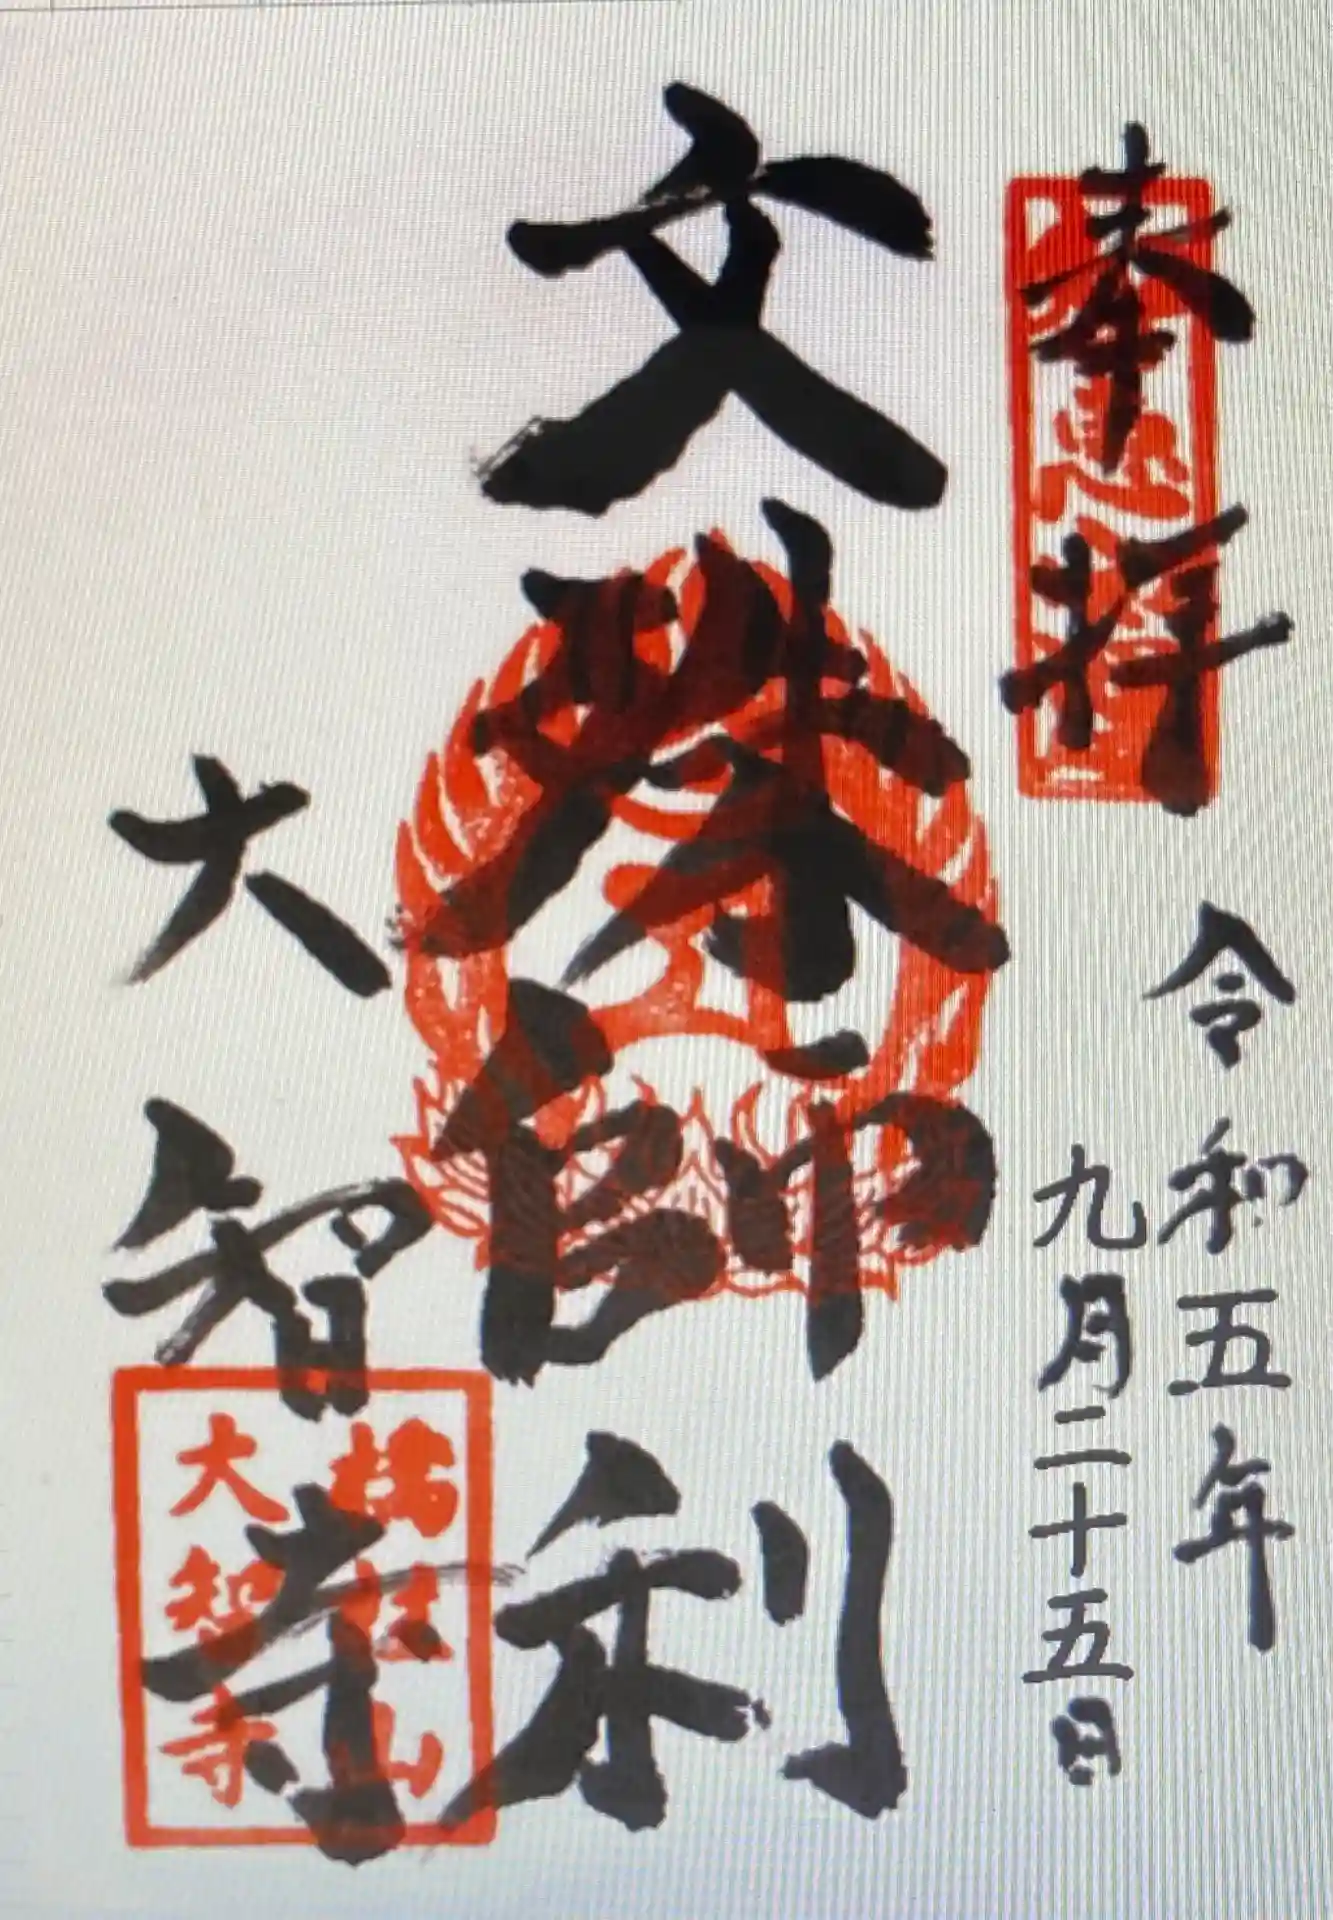 奉拝
令和五年
九月二十五日
文殊師利
大智寺
橋柱山
大智寺